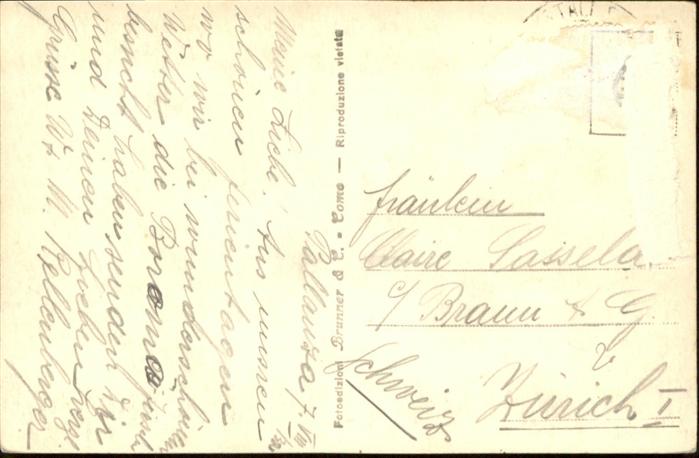 Pallanza 7 VIII
Meine Liebe! Aus unsern
schönen Ferientagen
wo wir bei wunderschönem
Wetter die Borromä Inseln
besucht haben senden Dir
und Deinen Lieben herzl.
Grüsse W & M. Kellenberger
Fotoedizioni Brunner & C. - Como — Riproduzione vietata
Fräulein
Claire Sassela
c/ Braun & G.
Zürich I
Schweiz